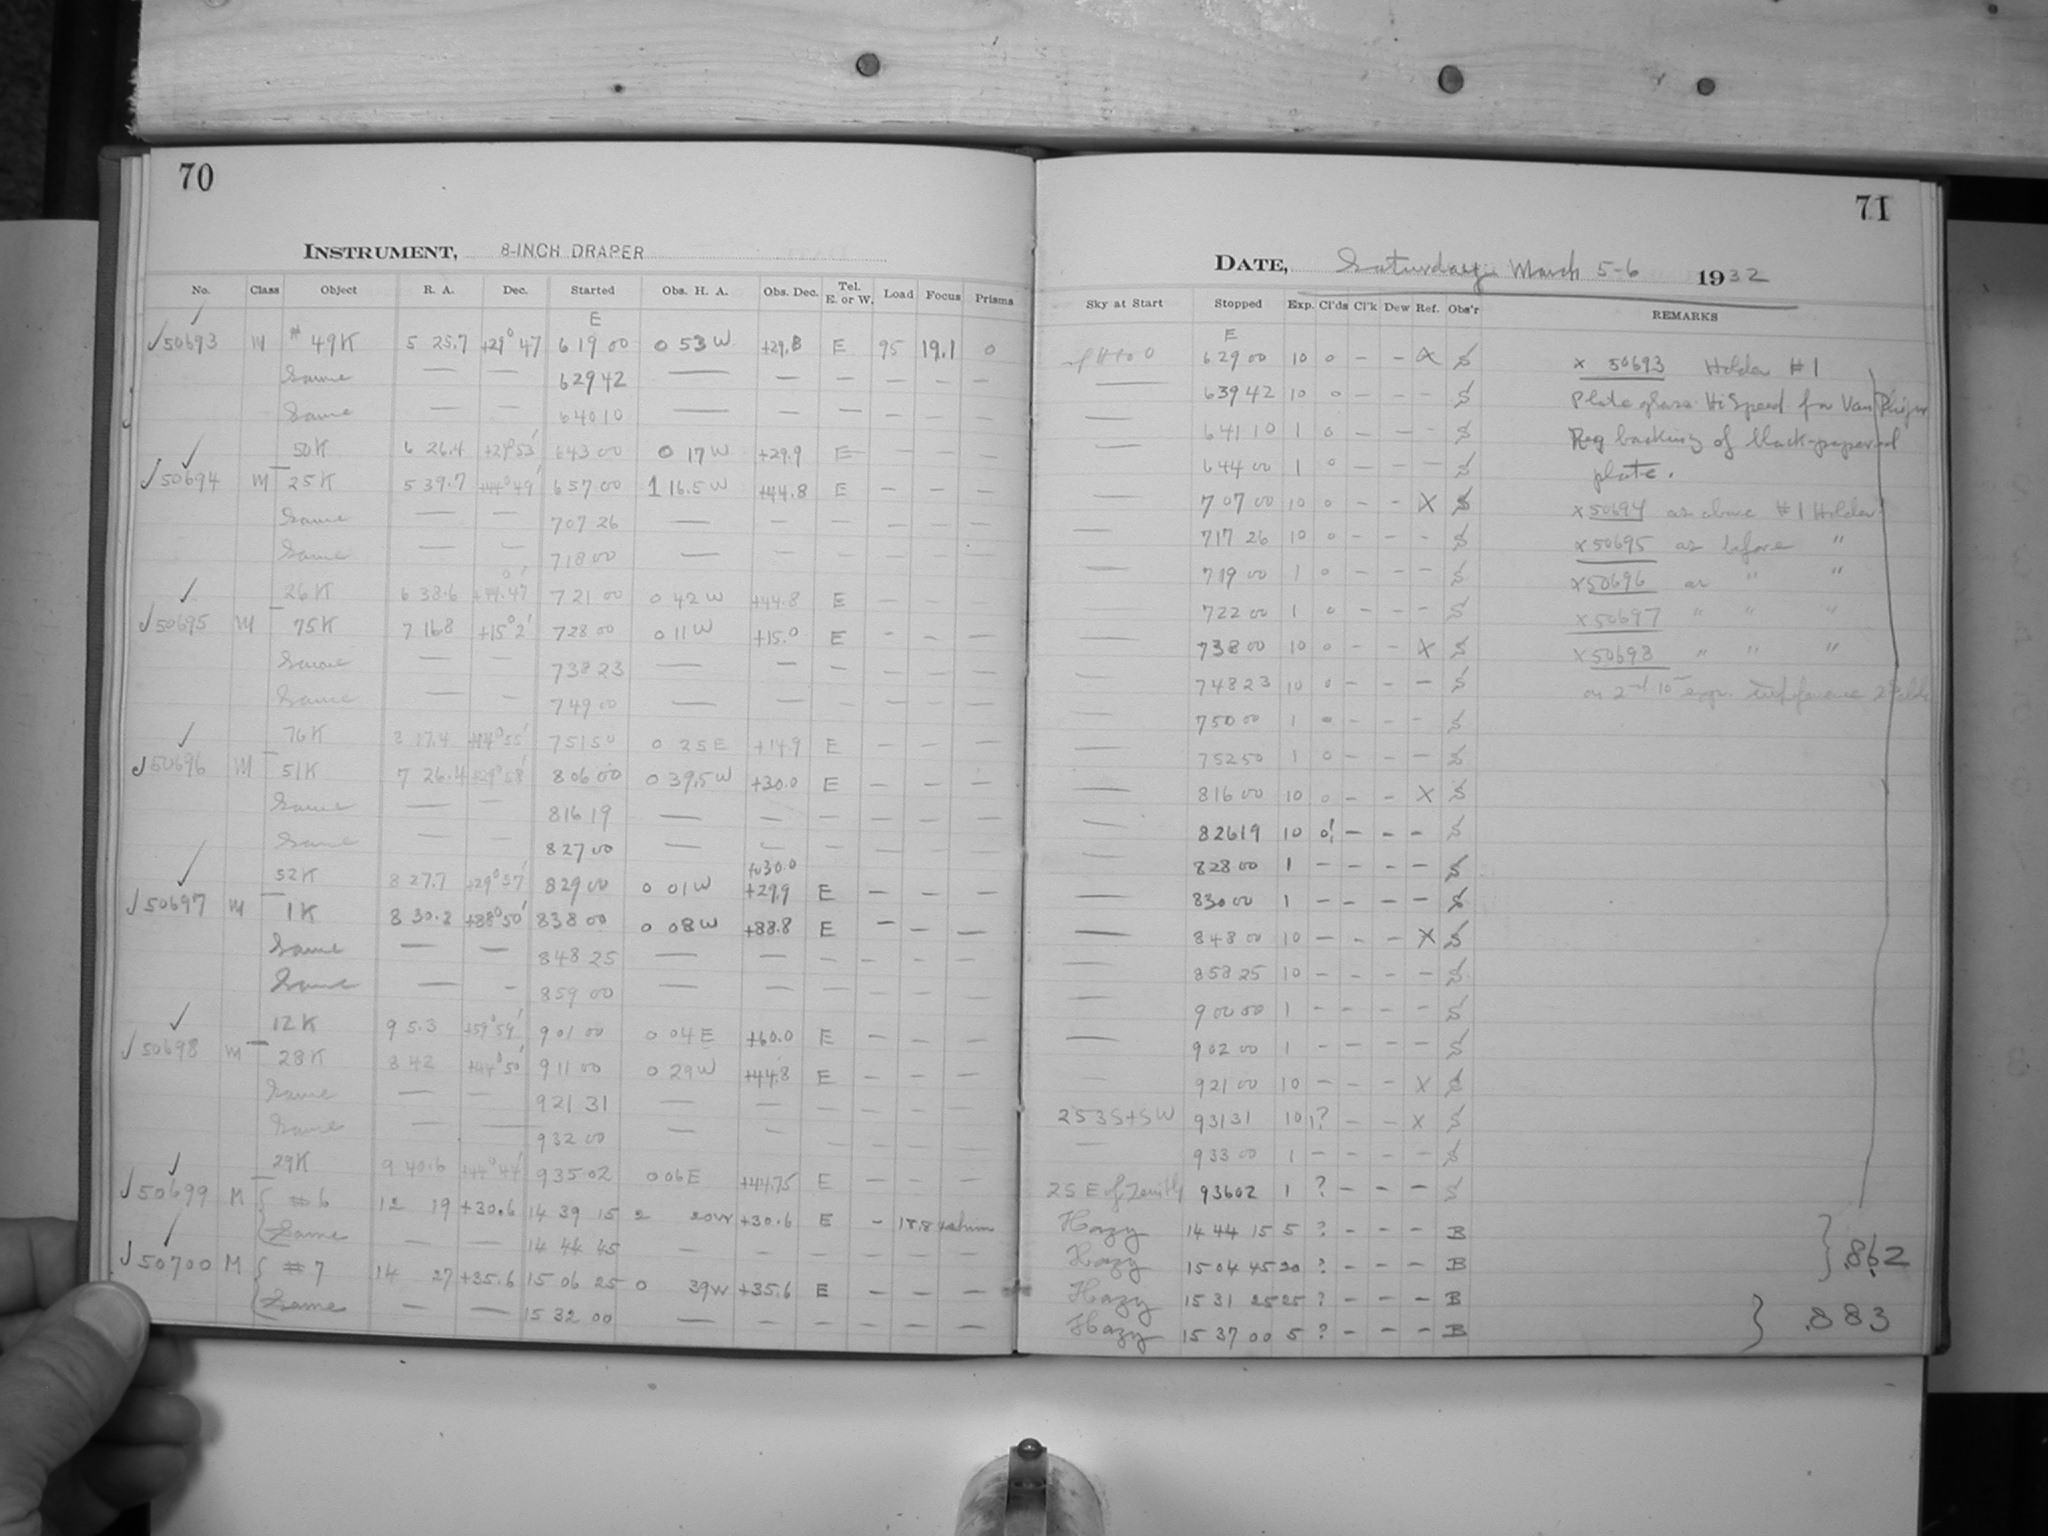 70
INSTRUMENT, 8-INCH DRAPER
No. Class Object R. A. Dec. Started Obs. H. A. Obs. Dec. Tel. E. or W. Load Focus Prisms
E
√50693 M # 49K 5 25.7 +29° 47 6 19 00 0 53 W +29.8 E 95 19.1 0
Same — — 6 29 42 — — — — — —
Same — — 6 40 10 — — — — — —
50K 6 26.4 +29° 53' 6 43 00 0 17 W +29.9 E — — —
√50694 M 25K 5 39.7 +44° 49' 6 57 00 1 16.5 W +44.8 E — — —
Same — — 7 07 26 — — — — — —
Same — — 7 18 00 — — — — — —
26K 6 38.6 +44° 47' 7 21 00 0 42 W +44.8 E — — —
√50695 M 75K 7 16.8 +15° 2' 7 28 00 0 11 W +15.0 E — — —
Same — — 7 38 23 — — — — — —
Same — — 7 49 00 — — — — — —
76K 8 17.4 +14° 55' 7 51 50 0 25 E +14.9 E — — —
√50696 M 51K 7 26.4 +29° 58' 8 06 00 0 39.5 W +30.0 E — — —
Same — — 8 16 19 — — — — — —
Same — — 8 27 00 — — — — — —
to 30.0
52K 8 27.7 +29° 57' 8 29 00 0 01 W +29.9 E — — —
√50697 M 1K 8 30.2 +88° 50' 8 38 00 0 08 W +88.8 E — — —
Same — — 8 48 25 — — — — — —
Same — — 8 59 00 — — — — — —
12K 9 5.3 +59° 59' 9 01 00 0 04 E +60.0 E — — —
√50698 M 28K 8 42 +44° 50' 9 11 00 0 29 W +44.8 E — — —
Same — — 9 21 31 — — — — — —
Same — — 9 32 00 — — — — — —
29K 9 40.6 +44° 44' 9 35 02 0 06 E +44.75 E — — —
√50699 M #6 12 19 +30.6 14 39 15 2 20W +30.6 E — 18.8
Same — — 14 44 45 — — — — — —
√50700 M #7 14 27 +35.6 15 06 25 0 39W +35.6 E — — —
Same — — 15 32 00 — — — — — —
71
DATE, Saturday March 5-6 1932
Sky at Start Stopped Exp. Cl'ds Cl'k Dew Ref. Obs'r REMARKS
E
6 29 00 10 0 — — X S x 50693 Holder #1
— 6 39 42 10 0 — — — S Plate glass Hi Speed for Van
— 6 41 10 1 0 — — — S Reg backing of black-papered
— 6 44 00 1 0 — — — S plate.
— 7 07 00 10 0 — — X S x 50694 as above #1 Holder
— 7 17 26 10 0 — — — S x 50695 as before "
— 7 19 00 1 0 — — — S x 50696 as " "
— 7 22 00 1 0 — — — S x 50697 " " "
— 7 38 00 10 0 — — X S x 50698 " " "
— 7 48 23 10 0 — — — S on 2nd 10m expr.
— 7 50 00 1 0 — — — S
— 7 52 50 1 0 — — — S
— 8 16 00 10 0 — — X S
— 8 26 19 10 0! — — — S
— 8 28 00 1 — — — — S
— 8 30 00 1 — — — — S
— 8 48 00 10 — — — X S
— 8 58 25 10 — — — — S
— 9 00 00 1 — — — — S
— 9 02 00 1 — — — — S
— 9 21 00 10 — — — X S
25 3 S+SW 9 31 31 10 1? — — X S
— 9 33 00 1 — — — — S
25 E of Zenith 9 36 02 1 ? — — — S
Hazy 14 44 15 5 ? — — — B
Hazy 15 04 45 20 ? — — — B } .862
Hazy 15 31 25 25 ? — — — B
Hazy 15 37 00 5 ? — — — B } .883